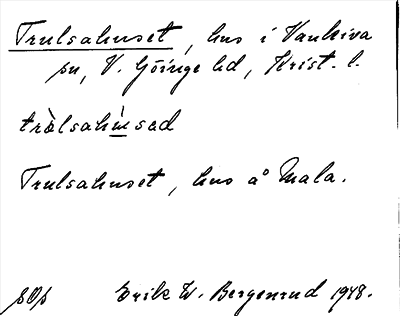 Trulsahuset, hus i Vankiva
sn, V. Göinge hd, Krist. l.
tròlsahu̇sad
Trulsahuset, hus å Mala.
Erik W. Bergenrud 1948.